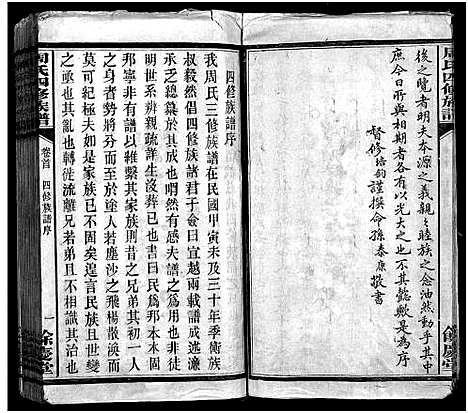 周氏四修族譜
後之覽者明夫本源之義親親睦族之念油然動乎其中
庶今日所與相期者各有以光大之也不其懿歟
督修培鈞謹撰命孫泰康敬書
餘慶堂
四修族譜序
我周氏三修族譜在民國甲寅未及三十年季衛族
老之總纂於其成也喟然有感夫譜之為用也非徒
明世系辨親疎詳生沒而已書曰民為邦本本固
邦寧非有大以維繫其家族則昔之兄弟其初一人
之身者勢將分而至於塗人塵沙之飛楊散渙而
罔有紀極夫如是家族已不固矣遑言民族且世變
之亟也其亂也轉徙流離兄若弟且不相顧其治也
周氏四修族譜
卷首
四修族譜序
一
餘慶堂